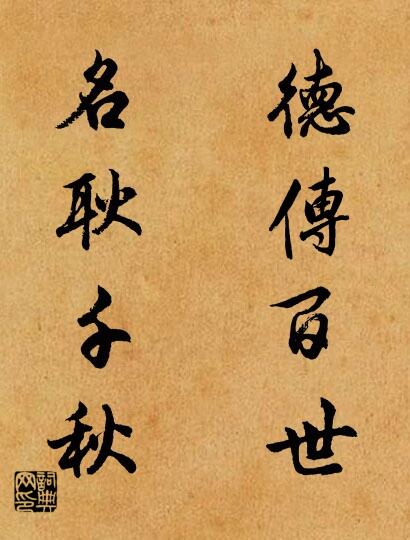 德傳百世
名耿千秋
詞典网印